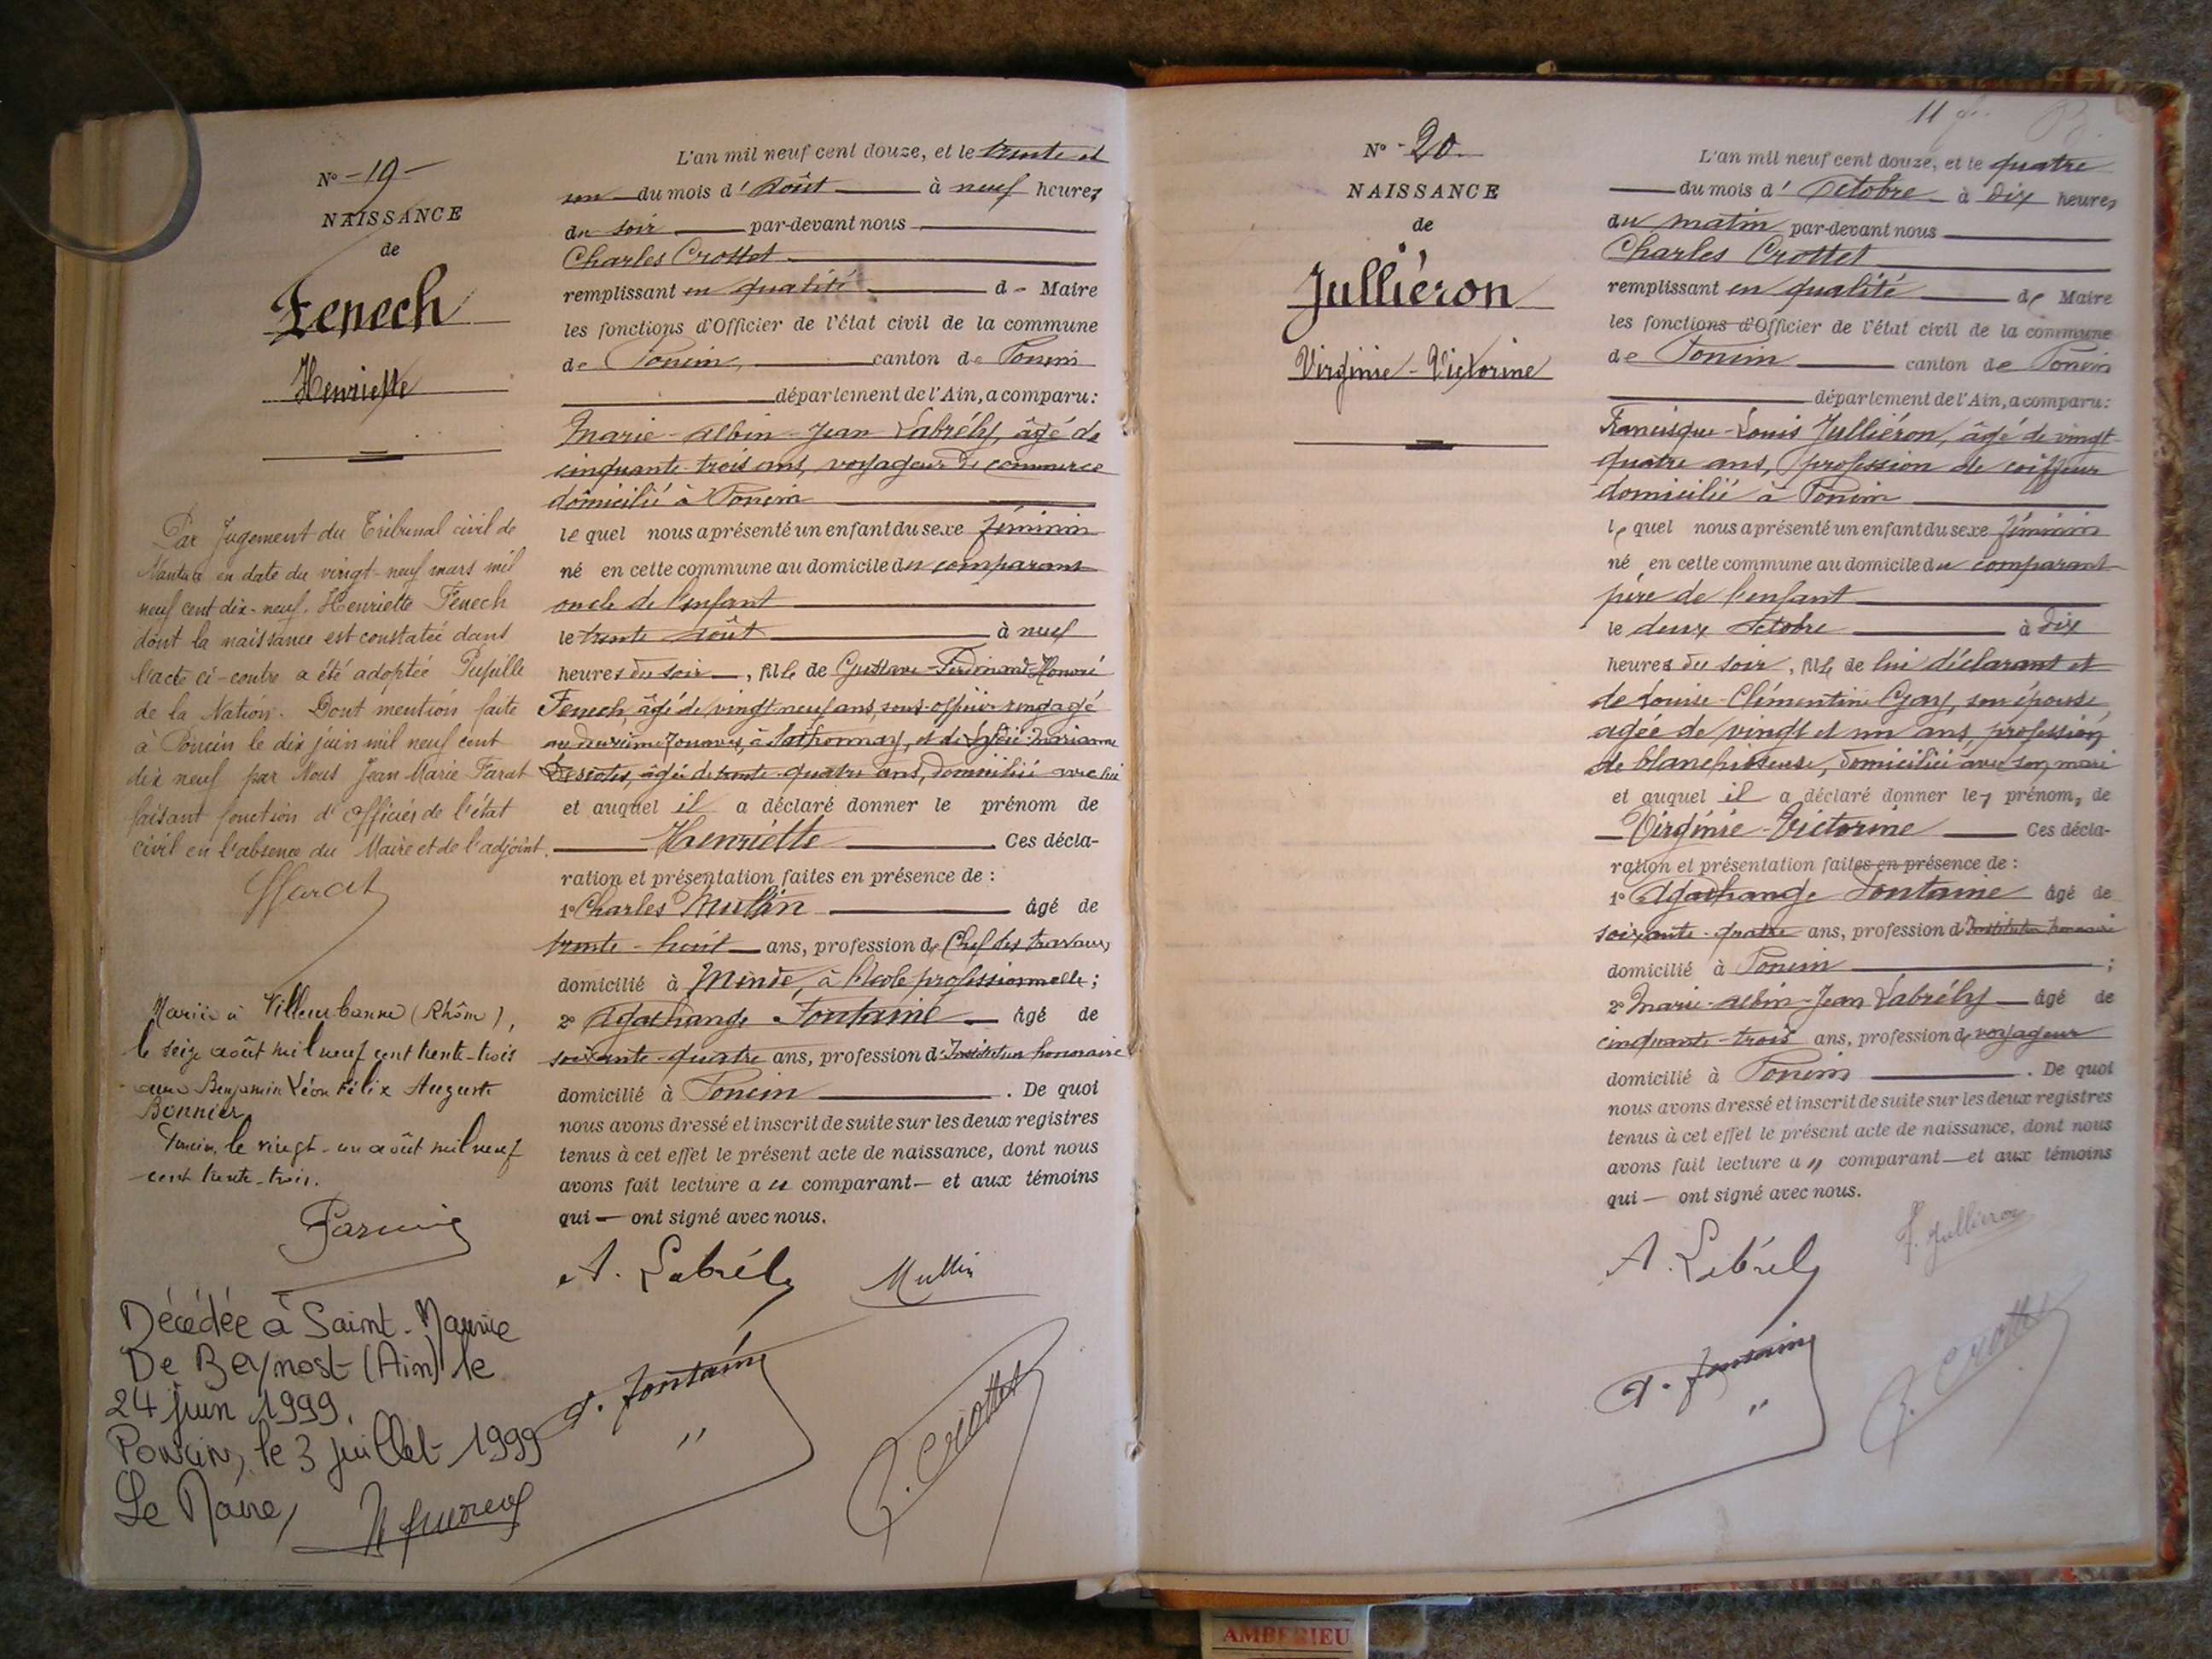 N° - 19 -
NAISSANCE
de
Fenech
Henriette
Par Jugement du Tribunal civil de
Nantua en date du vingt-neuf mars mil
neuf cent dix-neuf. Henriette Fenech
dont la naissance est constatée dans
l'acte ci-contre a été adoptée Pupille
de la Nation. Dont mention faite
à Poncin le dix juin mil neuf cent
dix neuf par Nous Jean Marie Farat
faisant fonction d'officier de l'état
civil en l'absence du Maire et de l'adjoint.
Mariée à Villeurbanne (Rhône),
le seize août mil neuf cent trente-trois
avec Benjamin Léon Félix Auguste
Bonnier
Poncin, le vingt-un août mil neuf
cent trente-trois.
Décédée à Saint-Maurice
De Beynost (Ain) le
24 juin 1999.
Poncin, le 3 juillet 1999
Le Maire,
L'an mil neuf cent douze, et le trente et
un du mois d'Août à neuf heures
du soir par-devant nous
Charles Crottet
remplissant en qualité d- Maire
les fonctions d'Officier de l'état civil de la commune
de Poncin, canton de Poncin
département de l'Ain, a comparu:
Marie-Albin-Jean Labrély, âgé de
cinquante-trois ans, voyageur de commerce
domicilié à Poncin
le quel nous a présenté un enfant du sexe féminin
né en cette commune au domicile du comparant
oncle de l'enfant
le trente août à neuf
heures du soir, fille de Gustave-Ferdinand-Honoré
Fenech, âgé de vingt neuf ans, sous-officier rengagé
au deuxième Zouaves, à Sathonnay, et de Lydie-Marianne
âgée de trente-quatre ans, domiciliée avec lui
et auquel il a déclaré donner le prénom de
Henriette. Ces décla-
ration et présentation faites en présence de :
1° Charles Mullin âgé de
trente-huit ans, profession de Chef des travaux,
domicilié à Mende, à l'école professionnelle;
2° Agathange Fontaine âgé de
soixante-quatre ans, profession d'Instituteur honoraire
domicilié à Poncin. De quoi
nous avons dressé et inscrit de suite sur les deux registres
tenus à cet effet le présent acte de naissance, dont nous
avons fait lecture au comparant— et aux témoins
qui — ont signé avec nous.
A. Labrély Mullin
A. Fontaine
C. Crottet
11
N° - 20 -
NAISSANCE
de
Julliéron
Virginie-Victorine
L'an mil neuf cent douze, et le quatre
du mois d'Octobre à dix heures
du matin par-devant nous
Charles Crottet
remplissant en qualité de Maire
les fonctions d'Officier de l'état civil de la commune
de Poncin canton de Poncin
département de l'Ain, a comparu:
Francisque-Louis Julliéron, âgé de vingt-
quatre ans, profession de coiffeur
domicilié à Poncin
le quel nous a présenté un enfant du sexe féminin
né en cette commune au domicile du comparant
père de l'enfant
le deux octobre à dix
heures du soir, fille de lui déclarant et
de Louise-Clémentine Gay, son épouse,
agée de vingt et un ans, profession
de blanchisseuse, domiciliée avec son mari
et auquel il a déclaré donner les prénoms de
Virginie-Victorine Ces décla-
ration et présentation faites en présence de :
1° Agathange Fontaine âgé de
soixante-quatre ans, profession d'Instituteur honoraire
domicilié à Poncin ;
2° Marie-Albin-Jean Labrély âgé de
cinquante-trois ans, profession de voyageur
domicilié à Poncin. De quoi
nous avons dressé et inscrit de suite sur les deux registres
tenus à cet effet le présent acte de naissance, dont nous
avons fait lecture au comparant—et aux témoins
qui — ont signé avec nous.
A. Labrély F. Julliéron
A. Fontaine
C. Crottet
AMBERIEU